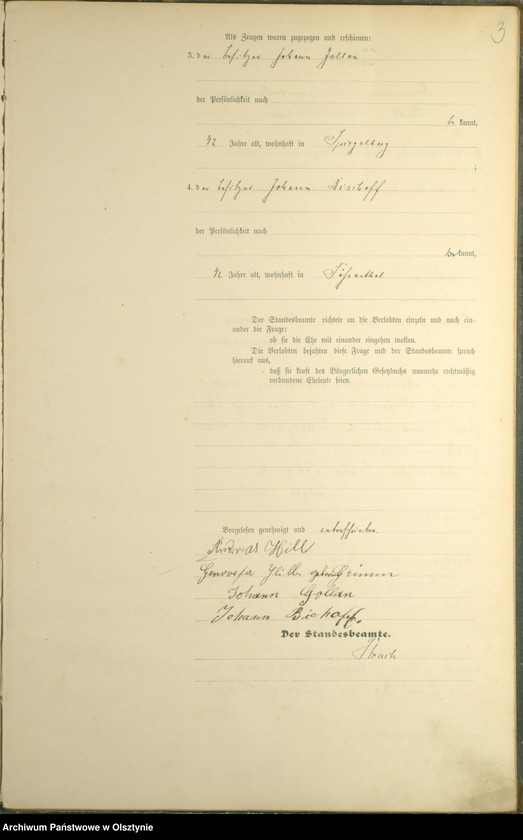 3
Als Zeugen waren zugezogen und erschienen:
3. der Besitzer Johann Gollan
der Persönlichkeit nach
be kannt,
42 Jahre alt, wohnhaft in Spiegelberg
;
4. der Besitzer Johann Bischoff
der Persönlichkeit nach
be kannt,
Jahre alt, wohnhaft in Schönthal
Der Standesbeamte richtete an die Verlobten einzeln und nach ein-
ander die Frage:
ob sie die Ehe mit einander eingehen wollen.
Die Verlobten bejahten diese Frage und der Standesbeamte sprach
hierauf aus,
daß sie kraft des Bürgerlichen Gesetzbuchs nunmehr rechtmäßig
verbundene Eheleute seien.
Vorgelesen, genehmigt und unterschrieben
Andreas Hill
Genovefa Hill geborne Grimm
Johann Gollan
Johann Bischoff.
Der Standesbeamte.
Archiwum Państwowe w Olsztynie